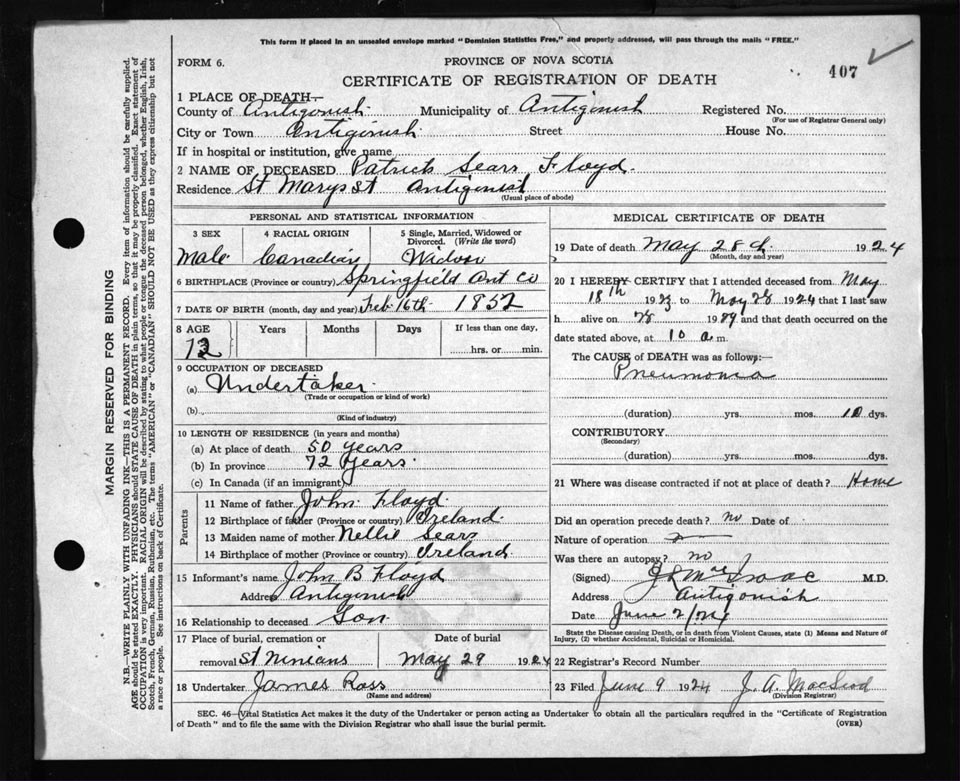 This form if placed in an unsealed envelope marked "Dominion Statistics Free," and properly addressed, will pass through the mails "FREE."
407
FORM 6.
PROVINCE OF NOVA SCOTIA
CERTIFICATE OF REGISTRATION OF DEATH
1 PLACE OF DEATH—
County of Antigonish Municipality of Antigonish Registered No.
(For use of Registrar General only)
City or Town Antigonish Street House No.
If in hospital or institution, give name
2 NAME OF DECEASED Patrick Sears Floyd.
Residence St Marys St Antigonish
(Usual place of abode)
PERSONAL AND STATISTICAL INFORMATION
3 SEX 4 RACIAL ORIGIN 5 Single, Married, Widowed or Divorced. (Write the word)
Male Canadian Widoor
6 BIRTHPLACE (Province or country) Springfield Ant Co
7 DATE OF BIRTH (month, day and year) Feb. 16th 1852
8 AGE Years Months Days If less than one day,
72 hrs. or min.
9 OCCUPATION OF DECEASED
(a) Undertaker
(Trade or occupation or kind of work)
(b)
(Kind of industry)
10 LENGTH OF RESIDENCE (in years and months)
(a) At place of death 50 years
(b) In province 72 years
(c) In Canada (if an immigrant)
Parents
11 Name of father John Floyd.
12 Birthplace of father (Province or country) Ireland.
13 Maiden name of mother Nellie Sears
14 Birthplace of mother (Province or country) Ireland.
15 Informant's name John B Floyd
Address Antigonish
16 Relationship to deceased Son
17 Place of burial, cremation or Date of burial
removal St Ninians May 29 1924
18 Undertaker James Ross
(Name and address)
MEDICAL CERTIFICATE OF DEATH
19 Date of death May 28th 1924
(Month, day and year)
20 I HEREBY CERTIFY that I attended deceased from May
18th 1923 to May 28 1924 that I last saw
h alive on 28 19 and that death occurred on the
date stated above, at 10 a.m.
The CAUSE of DEATH was as follows:—
Pneumonia
(duration) yrs. mos. 10 dys.
CONTRIBUTORY
(Secondary)
(duration) yrs. mos. dys.
21 Where was disease contracted if not at place of death? Home
Did an operation precede death? no Date of
Nature of operation
Was there an autopsy? no
(Signed) MacIsaac M.D.
Address Antigonish
Date June 2/24
State the Disease causing Death, or in death from Violent Causes, state (1) Means and Nature of
Injury, (2) whether Accidental, Suicidal or Homicidal.
22 Registrar's Record Number
23 Filed June 9 1924 J. A. MacLeod
(Division Registrar)
SEC. 46—Vital Statistics Act makes it the duty of the Undertaker or person acting as Undertaker to obtain all the particulars required in the "Certificate of Registration
of Death" and to file the same with the Division Registrar who shall issue the burial permit. (OVER)
MARGIN RESERVED FOR BINDING
N.B.—WRITE PLAINLY WITH UNFADING INK—THIS IS A PERMANENT RECORD. Every item of information should be carefully supplied.
AGE should be stated EXACTLY. PHYSICIANS should STATE CAUSE OF DEATH in plain terms, so that it may be properly classified. Exact statement of
OCCUPATION is very important. RACIAL ORIGIN will be described by stating to what people or tongue the deceased person belonged, whether English, Irish,
Scotch, French, German, Russian, Ruthenian, etc. The terms "AMERICAN" or "CANADIAN" SHOULD NOT BE USED as they express citizenship but not
a race or people. See instructions on back of Certificate.